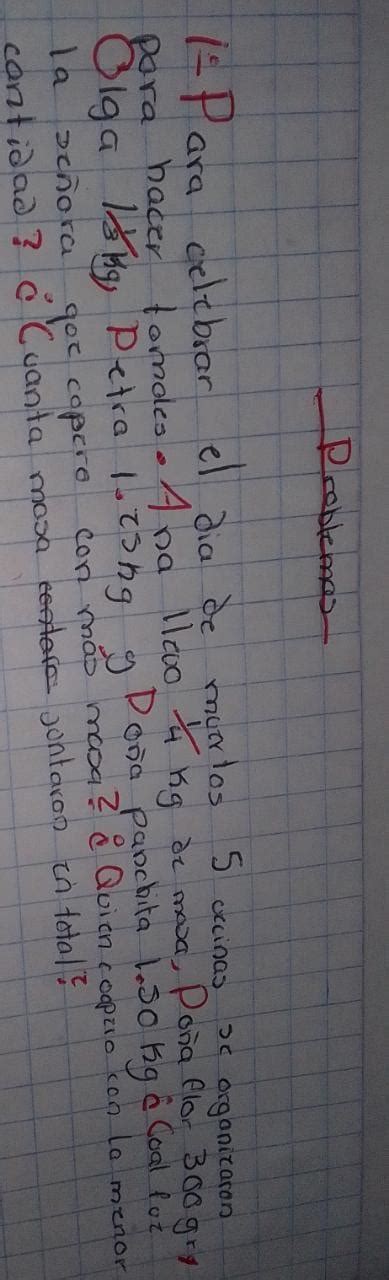 Problemas
1.- Para celebrar el dia de muertos 5 vecinas se organizaron
para hacer tamales. Ana llevo 1/4 kg de masa, Doña flor 300gr,
Olga 1 1/3 kg, Petra 1.25 kg y Doña panchita 1.50 kg ¿Cual fue
la señora que copero con más masa? ¿Quien copero con la menor
cantidad? ¿Cuanta masa juntaron en total?